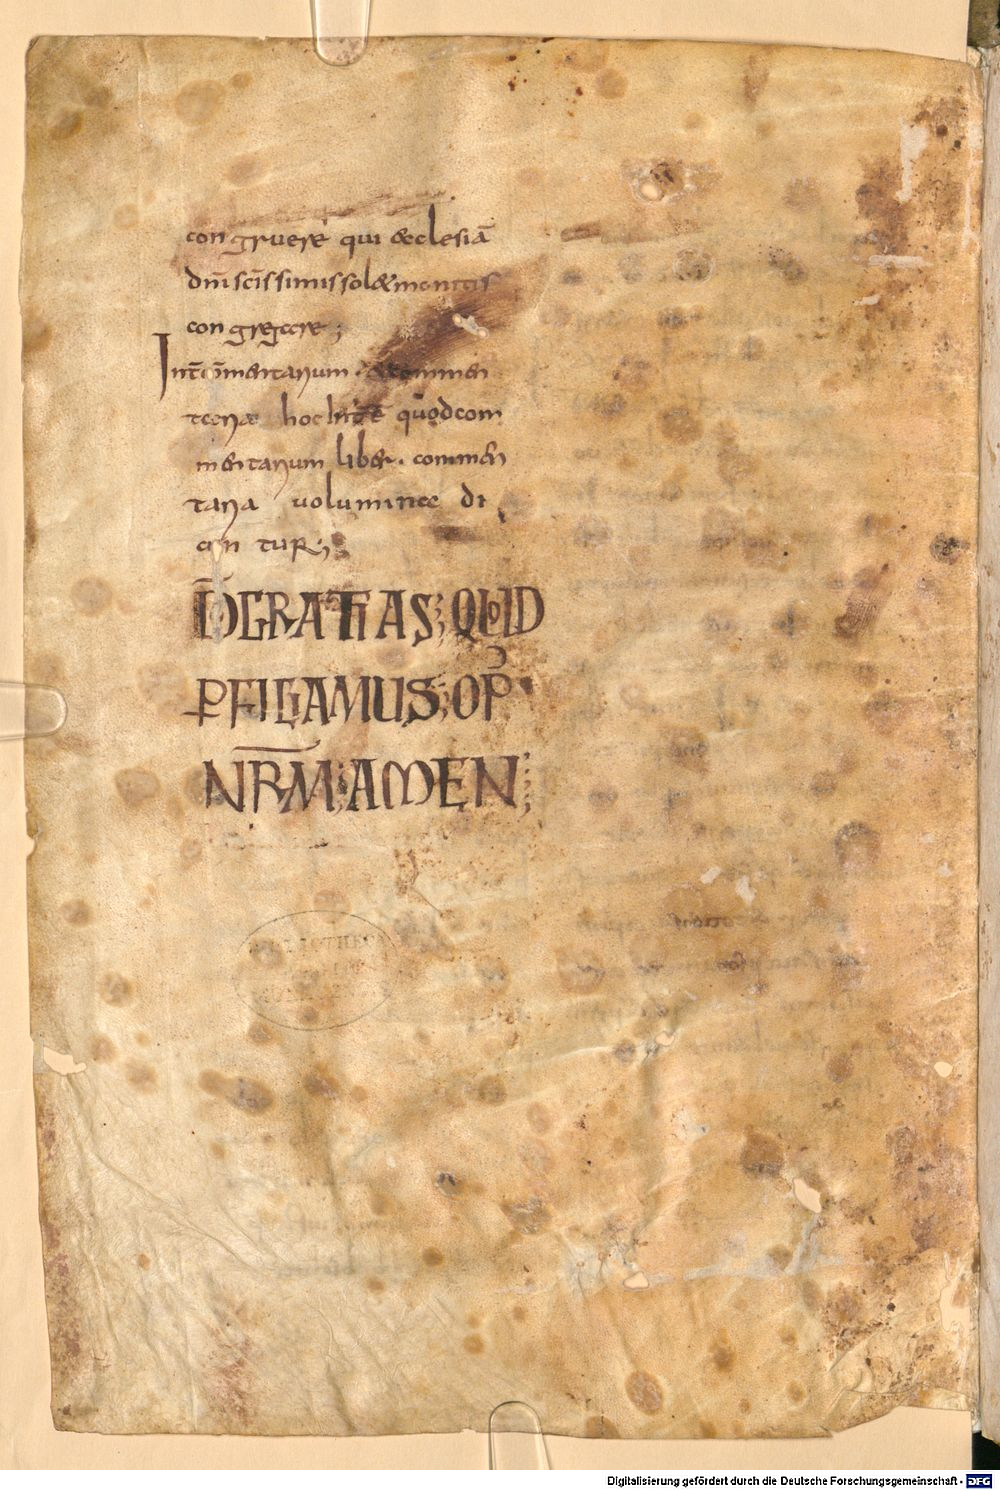 congruere qui æclesiā
dn̄i sc̄issimis sol& monitis
congregare;
Int̄ cōmentarium · & commen
taria hoc int̄ē quod com
mentarium liber · commen
taria uolumina di
cantur;
D̄O GRATIAS; QUOD
ꝑFICIAMUS; OP᾽
NR̄M; AMEN;
BIBLIOTHECA
Digitalisierung gefördert durch die Deutsche Forschungsgemeinschaft - DFG